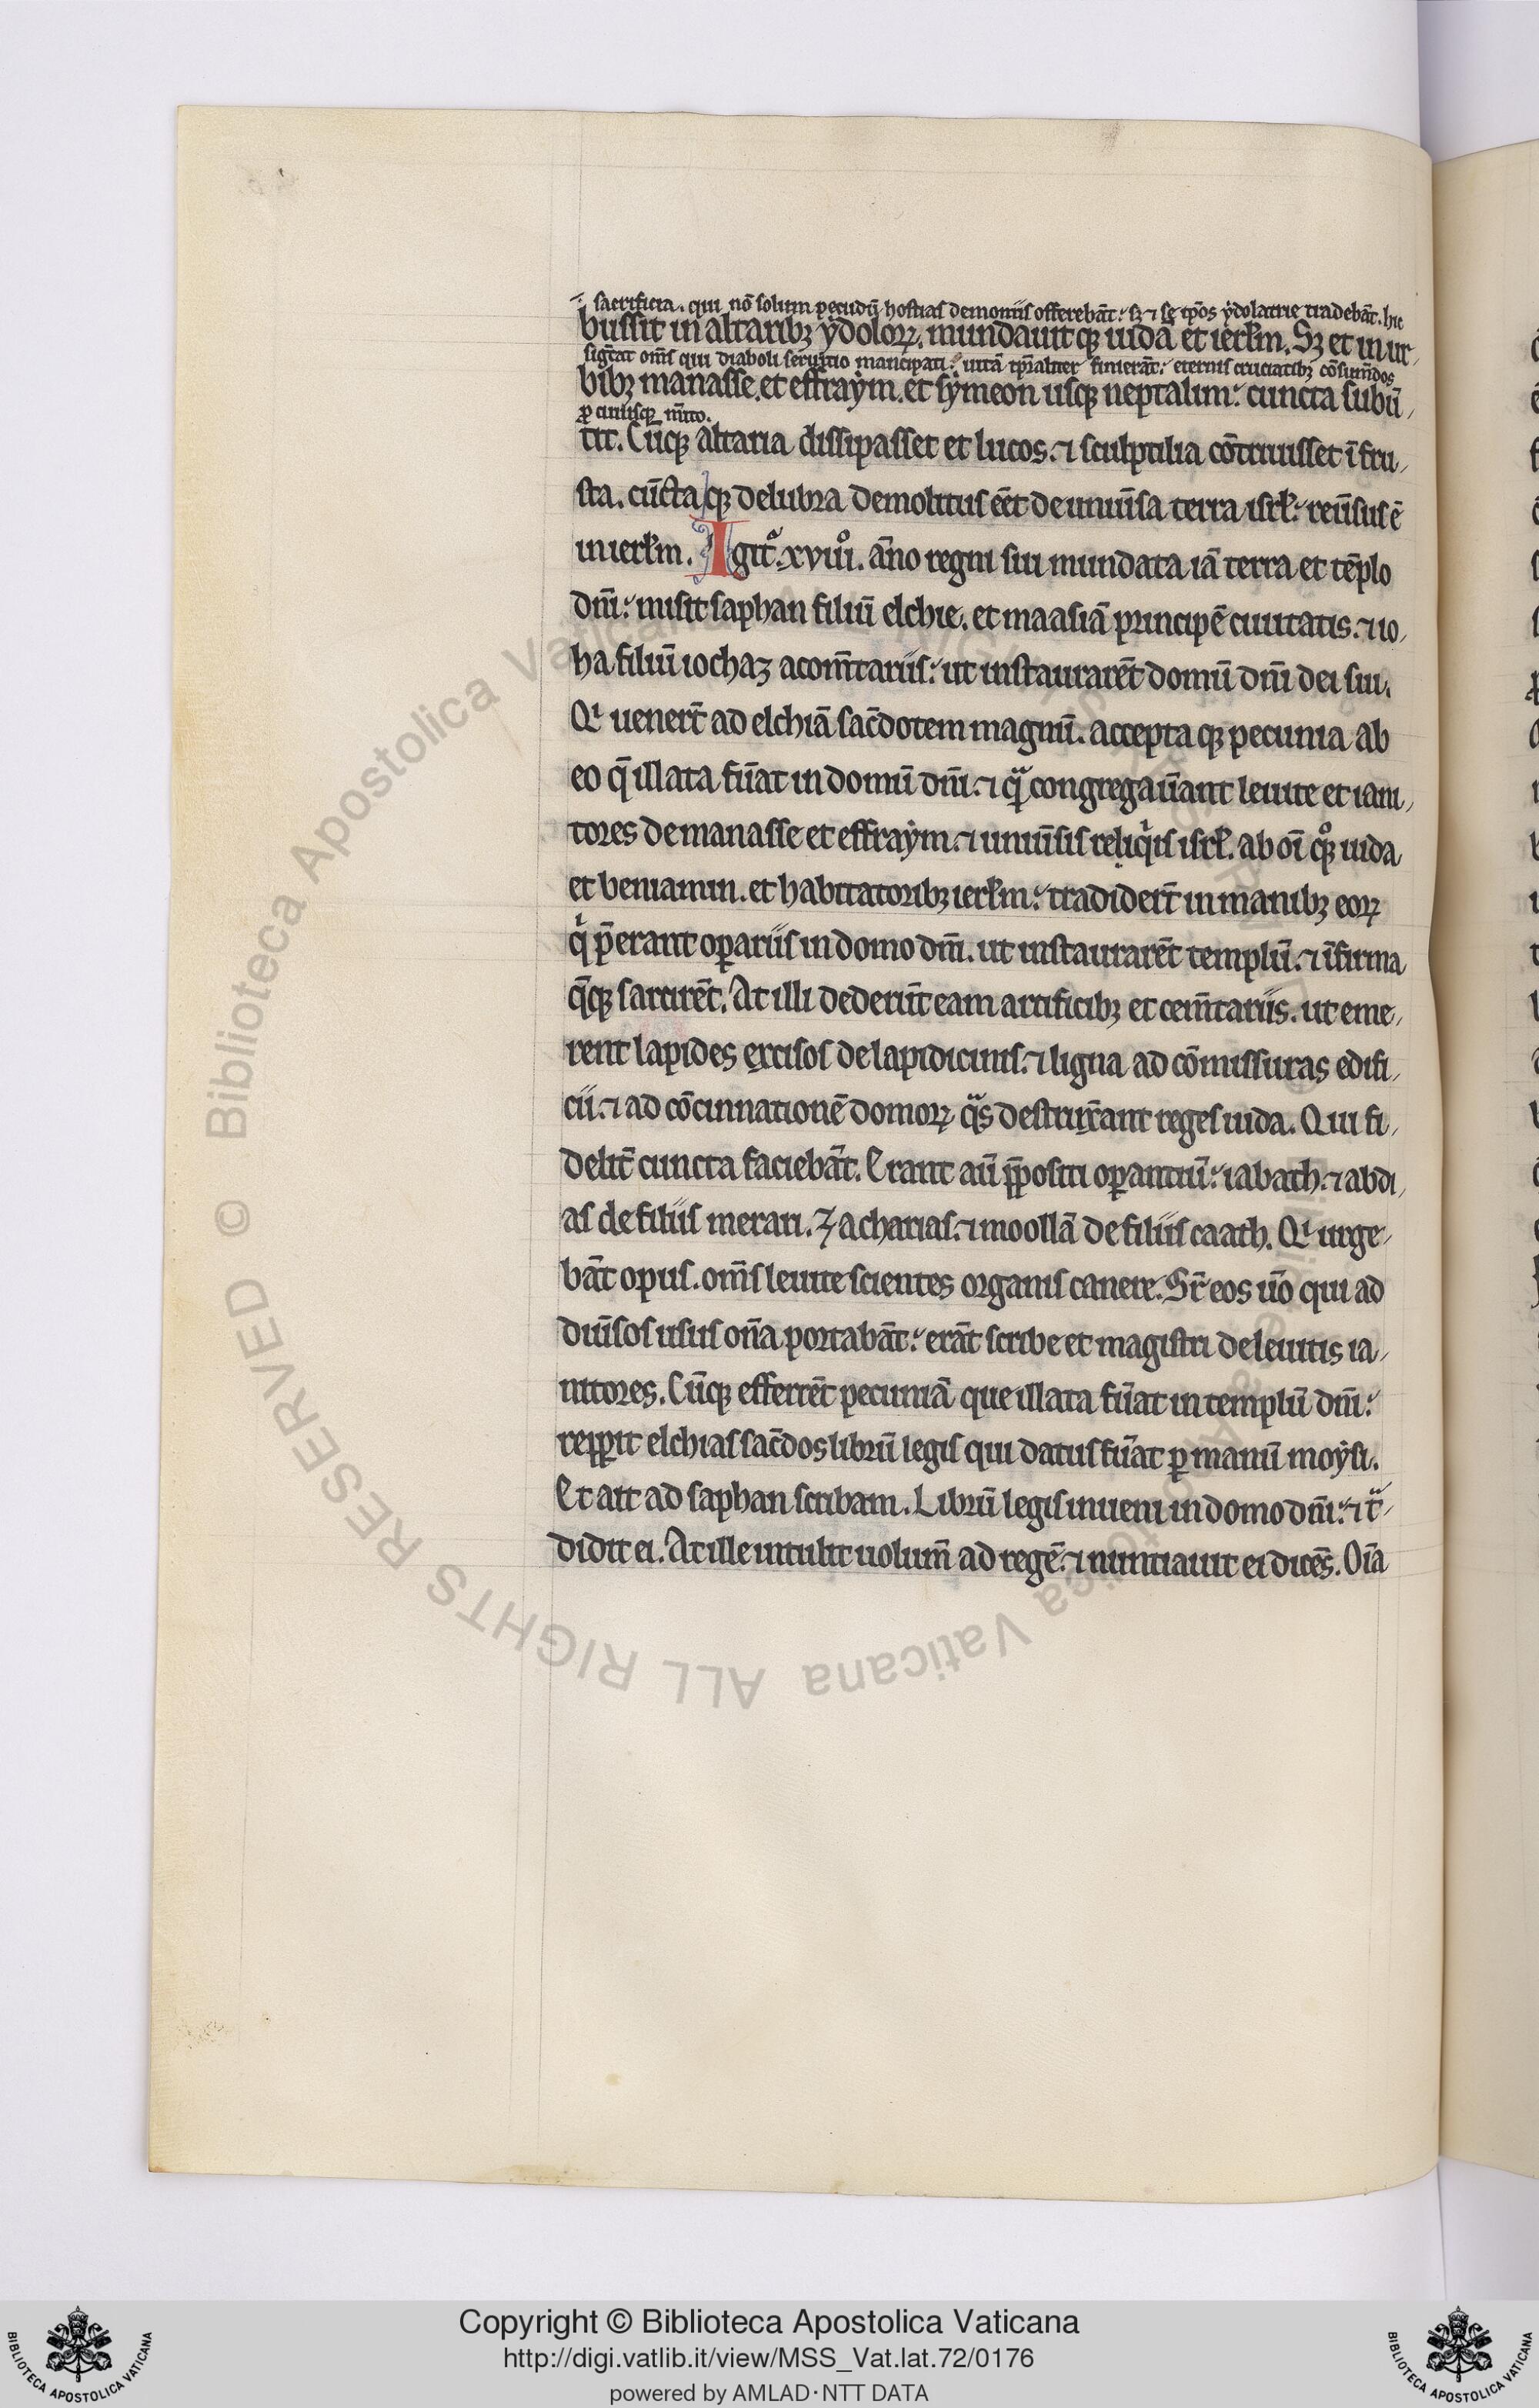 sacrificia. qui nō solum pecudū hostias demoniis offerebāt: sꝫ ⁊ se ip̄os ydolatrie tradebāt. hic
bussit in altaribꝫ ydoloꝝ. mundauitqꝫ iudā et ierl̄m. Sꝫ et in ur
sigt̄at om̄s qui diaboli seruitio mancipati: uitā tp̄raliter finierāt: eternis cruciatibꝫ cōsumēdos
bibꝫ manasse. et effraym. et symeon usqꝫ neptalim: cuncta subū
ꝓ cuiusqꝫ m̄ito.
tit. Cūqꝫ altaria dissipasset et lucos. ⁊ sculptilia cōtriuisset ī fru
sta. cūctaqꝫ delubra demolitus eēt de uniūsa terra isrl̄: reūsus ē
in ierl̄m. Igit͛. xviiiº. āno regni sui mundata iā terra et tēplo
dn̄i: misit saphan filiū elchie. et maasiā principē ciuitatis. ⁊ io
ha filiū iochaz a com̄tariis: ut instaurarēt domū dn̄i dei sui.
Qi uener̄t ad elchiā sac̄dotem magnū. acceptaqꝫ pecunia ab
eo q̄ illata fūat in domū dn̄i. ⁊ qͣ congregaūant leuite et iani
tores de manasse et effraym. ⁊ uniūsis reliqͥis isrl̄. ab oī qͦqꝫ iuda
et beniamin. et habitatoribꝫ ierl̄m: tradider̄t in manibꝫ eoꝝ
qͥ p̄erant oꝑariis in domo dn̄i. ut instaurarēt templū. ⁊ īfirma
q̄qꝫ sarcirēt. At illi dederūt eam artificibꝫ et cem̄tariis. ut eme
rent lapides excisos de lapidicinis. ⁊ ligna ad cōmissuras edifi
cii. ⁊ ad cōcinnationē domoꝝ qͣs destrux̄ant reges iuda. Qui fi
delit͛ cuncta faciebāt. Erant aū p̄positi oꝑantiū: iabath. ⁊ abdi
as de filiis merari. Zacharias. ⁊ moollā de filiis caath. Qi urge
bāt opus. om̄s leuite scientes organis canere. Sr̄ eos ūo qui ad
diūsos usus on̄a portabāt: erāt scribe et magistri de leuitis ia
nitores. Cūqꝫ efferrēt pecuniā que illata fūat in templū dn̄i:
repꝑit elchias sac̄dos librū legis qui datus fūat ꝑ manū moysi.
Et ait ad saphan scribam. Librū legis inueni in domo dn̄i: ⁊ tͣ
didit ei. At ille intulit uolum̄ ad regē. ⁊ nuntiauit ei dicēs. Oīa
© Biblioteca Apostolica Vaticana ALL RIGHTS RESERVED
Copyright © Biblioteca Apostolica Vaticana
http://digi.vatlib.it/view/MSS_Vat.lat.72/0176
powered by AMLAD·NTT DATA
BIBLIOTECA APOSTOLICA VATICANA
BIBLIOTECA APOSTOLICA VATICANA